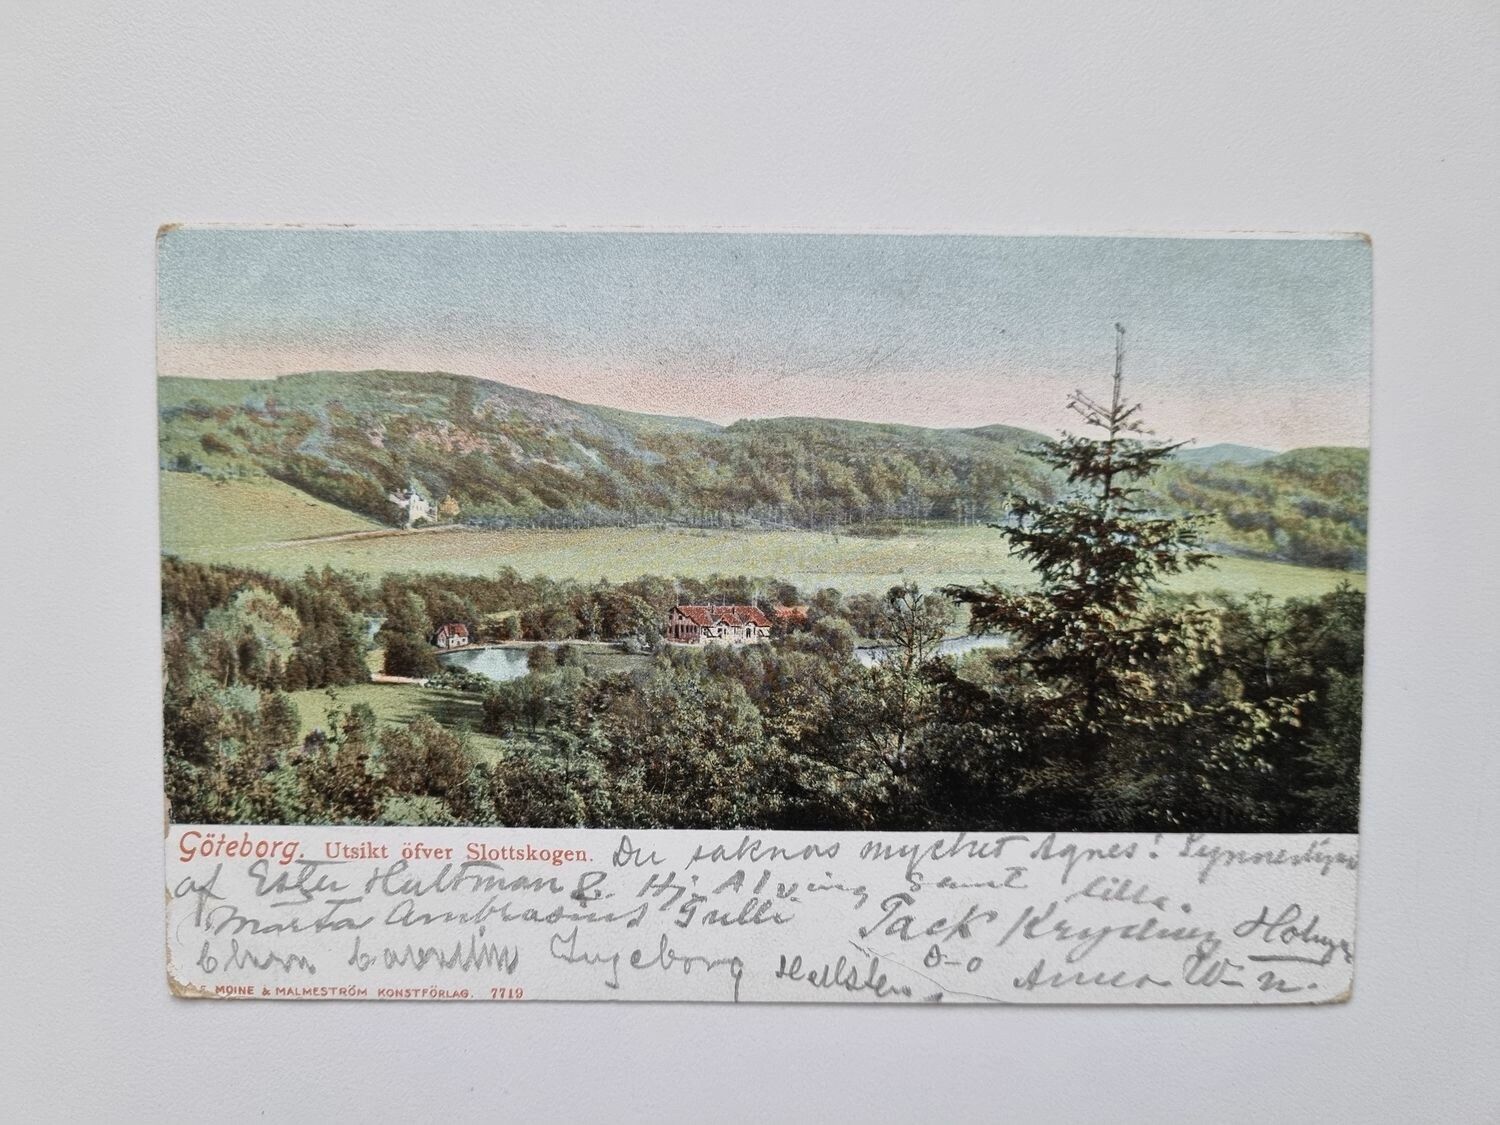 Göteborg. Utsikt öfver Slottskogen. Du saknas mycket Agnes! Synnerligen
af Ester Hultman & Hj. Alving samt lilla.
Märta Ambrosius Gulli Tack Kryddner Holger
Ingeborg Hellsten. D-o Anna W-n.
MOINE & MALMESTRÖM KONSTFÖRLAG. 7719